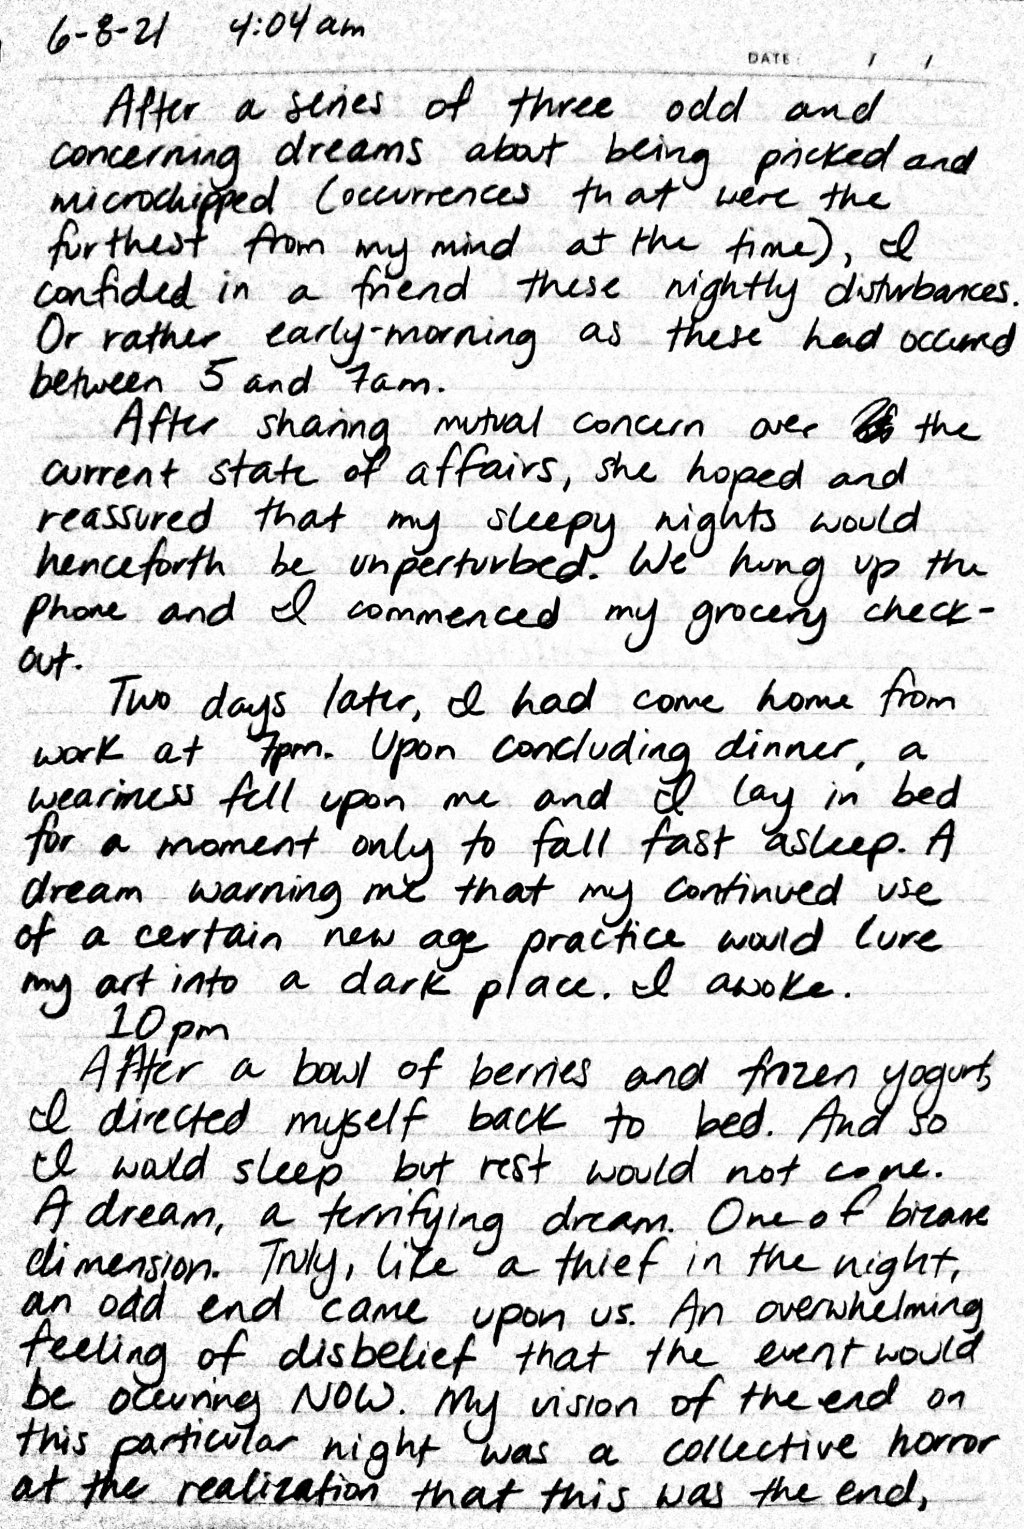 6-8-21 4:04am
DATE: / /
After a series of three odd and
concerning dreams about being pricked and
microchipped (occurrences that were the
furthest from my mind at the time), I
confided in a friend these nightly disturbances.
Or rather early-morning as these had occured
between 5 and 7am.
After sharing mutual concern over the
current state of affairs, she hoped and
reassured that my sleepy nights would
henceforth be unperturbed. We hung up the
phone and I commenced my grocery check-
out.
Two days later, I had come home from
work at 7pm. Upon concluding dinner, a
weariness fell upon me and I lay in bed
for a moment only to fall fast asleep. A
dream warning me that my continued use
of a certain new age practice would lure
my art into a dark place. I awoke.
10pm
After a bowl of berries and frozen yogurt,
I directed myself back to bed. And so
I would sleep but rest would not come.
A dream, a terrifying dream. One of bizarre
dimension. Truly, like a thief in the night,
an odd end came upon us. An overwhelming
feeling of disbelief that the event would
be occuring NOW. My vision of the end on
this particular night was a collective horror
at the realization that this was the end,